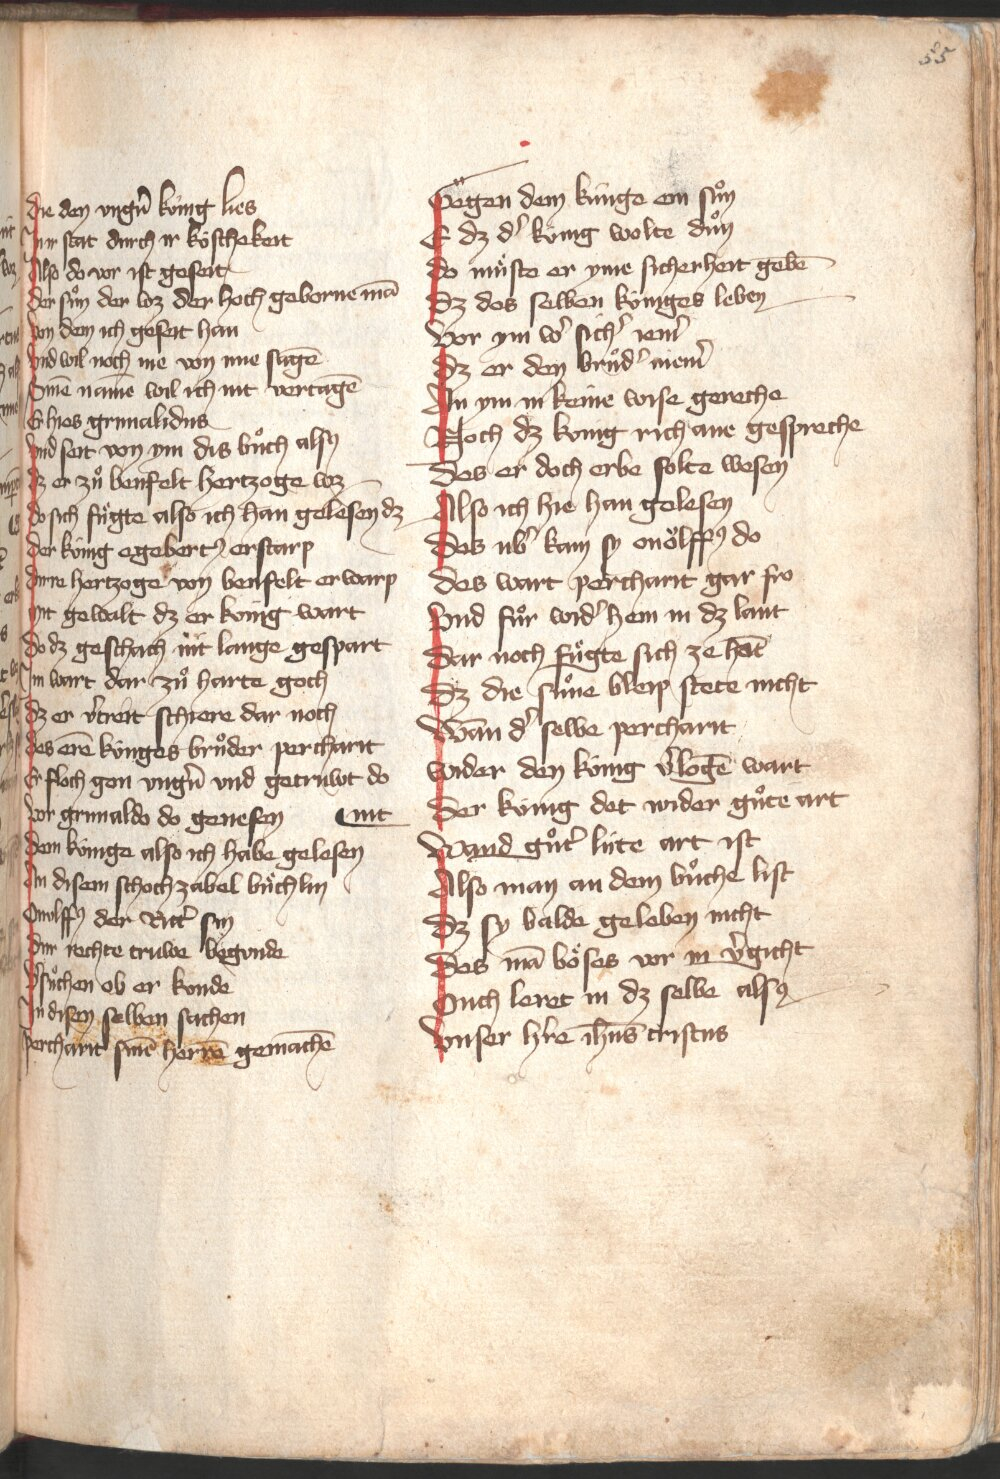 55
die den vngeꝛ̄ kúnig lies
In ir stat durch ir kóschekeit
Also do vor ist geseit
der sůn der wz der hoch geborne mā
von dem ich geseit han
vnd wil noch me von ime sagē
Sinē namē wil ich nit vertagē
Er hies grimalidus
vnd seit von ym dis bůch alsꝰ
dz er zů benfelt hertzoge wz
do sich fůgte also ich han gelesen dz
der kúnig egebertꝰ erstarp
dirre hertzoge von benfelt erwarp
mit gewalt dz er kúnig wart
do dz geschach nit lange gespart
Im wart dar zů harte goch
dz er v̄treit schiere dar noch
des erē kúniges brůder percharit
Er floch gen vngeꝛ̄ vnd getruwt do
vor grimaldo do genesen nit
dem kúnige also ich habe gelesen
In disem schochzabel bůchlin
Onolffꝰ der Ritt' sin
dur rechte truwe begunde
v̄sůchen ob er konde
In disen selben sachen
percharit sinē herrē gemachē
Gegen dem kúnge ein sůn
E dz d' kúnig wolte důn
do můste er yme sicherheit gebē
dz des selben kúniges leben
vor ym w' sich' iem'
dz er den brůd' niem'
An ym in keine wise gereche
Noch dz konigrich ane gespreche
Des er doch erbe solte wesen
Also ich hie han gelesen
Des úb' kam sy onólffꝰ do
des wart percharit gar fro
vnd fůr wid' hem in dz lant
Dar noch fůgte sich ze hāt
Dz die sůne bleip stete nicht
Wan d' selbe percharit
wider den kúnig v̄logē wart
Der kúnig det wider gůte art
Wand gůt' lúte art ist
Also man an dem bůche list
Dz sy balde geleben nicht
Des mā bóses vor in v̄gicht
Ouch leret in dz selbe alsꝰ
vnser hʼre ih̄us cristus